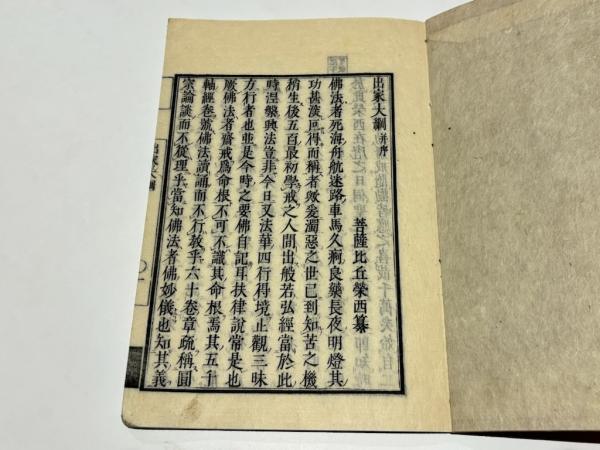 出家大綱并序
菩薩比丘榮西纂
佛法者死海舟航迷路車馬久痾良藥長夜明燈其
功甚深叵得而稱者歟爰濁惡之世已到知苦之機
稍生後五百最初學戒之人間出般若弘經當於此
時涅槃興法豈非今日又法華四行得境止觀三昧
方行者也並是今時之要佛自記耳扶律說常是也
厥佛法者齋戒爲命根不可不識其命根焉其五千
軸經卷號佛法讀誦而不行教乎六十卷章疏稱圓
宗論談而不從理乎當知佛法者佛妙儀也知其義
出家大綱